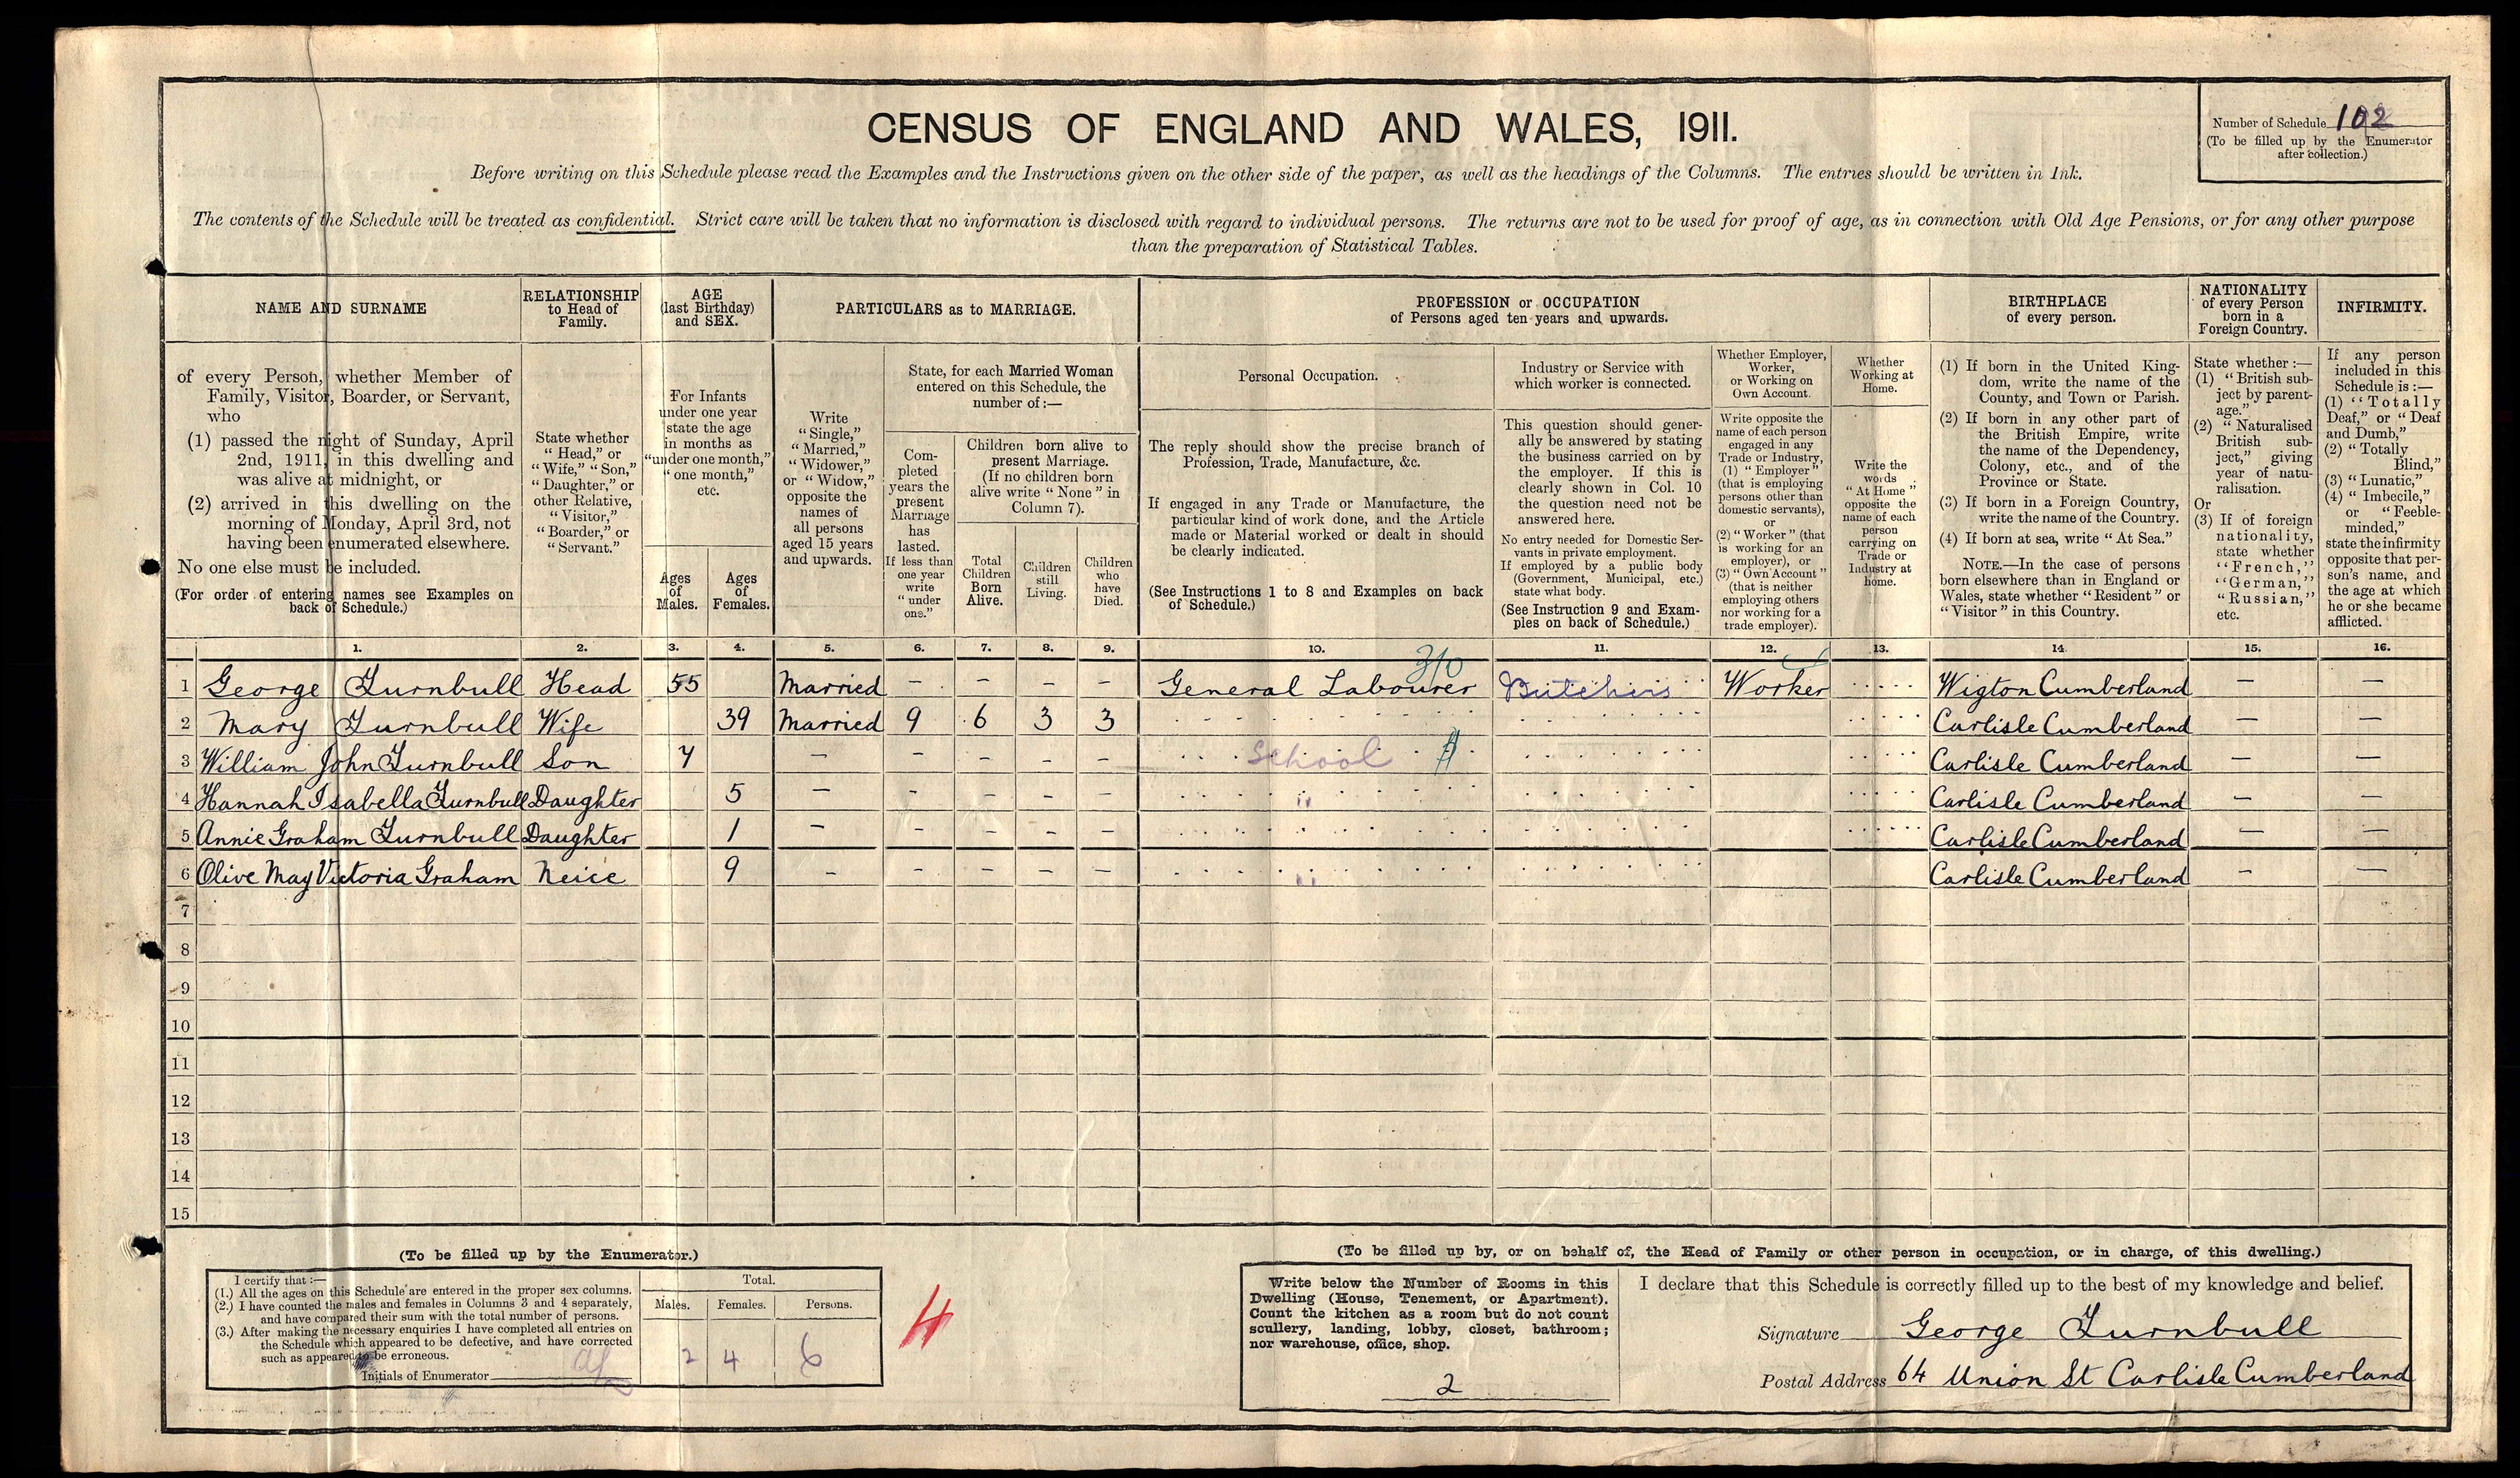 CENSUS OF ENGLAND AND WALES, 1911.
Number of Schedule 102
(To be filled up by the Enumerator
after collection.)
Before writing on this Schedule please read the Examples and the Instructions given on the other side of the paper, as well as the headings of the Columns. The entries should be written in Ink.
The contents of the Schedule will be treated as confidential. Strict care will be taken that no information is disclosed with regard to individual persons. The returns are not to be used for proof of age, as in connection with Old Age Pensions, or for any other purpose
than the preparation of Statistical Tables.
NAME AND SURNAME
RELATIONSHIP
to Head of
Family.
AGE
(last Birthday)
and SEX.
PARTICULARS as to MARRIAGE.
PROFESSION or OCCUPATION
of Persons aged ten years and upwards.
BIRTHPLACE
of every person.
NATIONALITY
of every Person
born in a
Foreign Country.
INFIRMITY.
of every Person, whether Member of
Family, Visitor, Boarder, or Servant,
who
(1) passed the night of Sunday, April
2nd, 1911, in this dwelling and
was alive at midnight, or
(2) arrived in this dwelling on the
morning of Monday, April 3rd, not
having been enumerated elsewhere.
No one else must be included.
(For order of entering names see Examples on
back of Schedule.)
State whether
"Head," or
"Wife," "Son,"
"Daughter," or
other Relative,
"Visitor,"
"Boarder," or
"Servant."
For Infants
under one year
state the age
in months as
"under one month,"
"one month,"
etc.
Ages
of
Males.
Ages
of
Females.
Write
"Single,"
"Married,"
"Widower,"
or "Widow,"
opposite the
names of
all persons
aged 15 years
and upwards.
State, for each Married Woman
entered on this Schedule, the
number of:—
Com-
pleted
years the
present
Marriage
has
lasted.
If less than
one year
write
"under
one."
Children born alive to
present Marriage.
(If no children born
alive write "None" in
Column 7).
Total
Children
Born
Alive.
Children
still
Living.
Children
who
have
Died.
Personal Occupation.
The reply should show the precise branch of
Profession, Trade, Manufacture, &c.
If engaged in any Trade or Manufacture, the
particular kind of work done, and the Article
made or Material worked or dealt in should
be clearly indicated.
(See Instructions 1 to 8 and Examples on back
of Schedule.)
Industry or Service with
which worker is connected.
This question should gener-
ally be answered by stating
the business carried on by
the employer. If this is
clearly shown in Col. 10
the question need not be
answered here.
No entry needed for Domestic Ser-
vants in private employment.
If employed by a public body
(Government, Municipal, etc.)
state what body.
(See Instruction 9 and Exam-
ples on back of Schedule.)
Whether Employer,
Worker,
or Working on
Own Account.
Write opposite the
name of each person
engaged in any
Trade or Industry,
(1) "Employer"
(that is employing
persons other than
domestic servants),
or
(2) "Worker" (that
is working for an
employer), or
(3) "Own Account"
(that is neither
employing others
nor working for a
trade employer).
Whether
Working at
Home.
Write the
words
"At Home"
opposite the
name of each
person
carrying on
Trade or
Industry at
home.
(1) If born in the United King-
dom, write the name of the
County, and Town or Parish.
(2) If born in any other part of
the British Empire, write
the name of the Dependency,
Colony, etc., and of the
Province or State.
(3) If born in a Foreign Country,
write the name of the Country.
(4) If born at sea, write "At Sea."
NOTE.—In the case of persons
born elsewhere than in England or
Wales, state whether "Resident" or
"Visitor" in this Country.
State whether:—
(1) "British sub-
ject by parent-
age."
(2) "Naturalised
British sub-
ject," giving
year of natu-
ralisation.
Or
(3) If of foreign
nationality,
state whether
"French,"
"German,"
"Russian,"
etc.
If any person
included in this
Schedule is:—
(1) "Totally
Deaf," or "Deaf
and Dumb,"
(2) "Totally
Blind,"
(3) "Lunatic,"
(4) "Imbecile,"
or "Feeble-
minded,"
state the infirmity
opposite that per-
son's name, and
the age at which
he or she became
afflicted.
1. 2. 3. 4. 5. 6. 7. 8. 9. 10. 11. 12. 13. 14 15. 16.
310
1 George Turnbull Head 55 Married – – – – General Labourer Butchers Worker Wigton Cumberland – –
2 Mary Turnbull Wife 39 Married 9 6 3 3 Carlisle Cumberland – –
3 William John Turnbull Son 7 – – – – – School Carlisle Cumberland – –
4 Hannah Isabella Turnbull Daughter 5 – – – – – " Carlisle Cumberland – –
5 Annie Graham Turnbull Daughter 1 – – – – – Carlisle Cumberland – –
6 Olive May Victoria Graham Neice 9 – – – – – " Carlisle Cumberland – –
7
8
9
10
11
12
13
14
15
(To be filled up by the Enumerator.)
I certify that:—
(1.) All the ages on this Schedule are entered in the proper sex columns.
(2.) I have counted the males and females in Columns 3 and 4 separately,
and have compared their sum with the total number of persons.
(3.) After making the necessary enquiries I have completed all entries on
the Schedule which appeared to be defective, and have corrected
such as appeared to be erroneous.
Initials of Enumerator
Total.
Males. Females. Persons.
2 4 6
4
(To be filled up by, or on behalf of, the Head of Family or other person in occupation, or in charge, of this dwelling.)
Write below the Number of Rooms in this
Dwelling (House, Tenement, or Apartment).
Count the kitchen as a room but do not count
scullery, landing, lobby, closet, bathroom;
nor warehouse, office, shop.
2
I declare that this Schedule is correctly filled up to the best of my knowledge and belief.
Signature George Turnbull
Postal Address 64 Union St Carlisle Cumberland